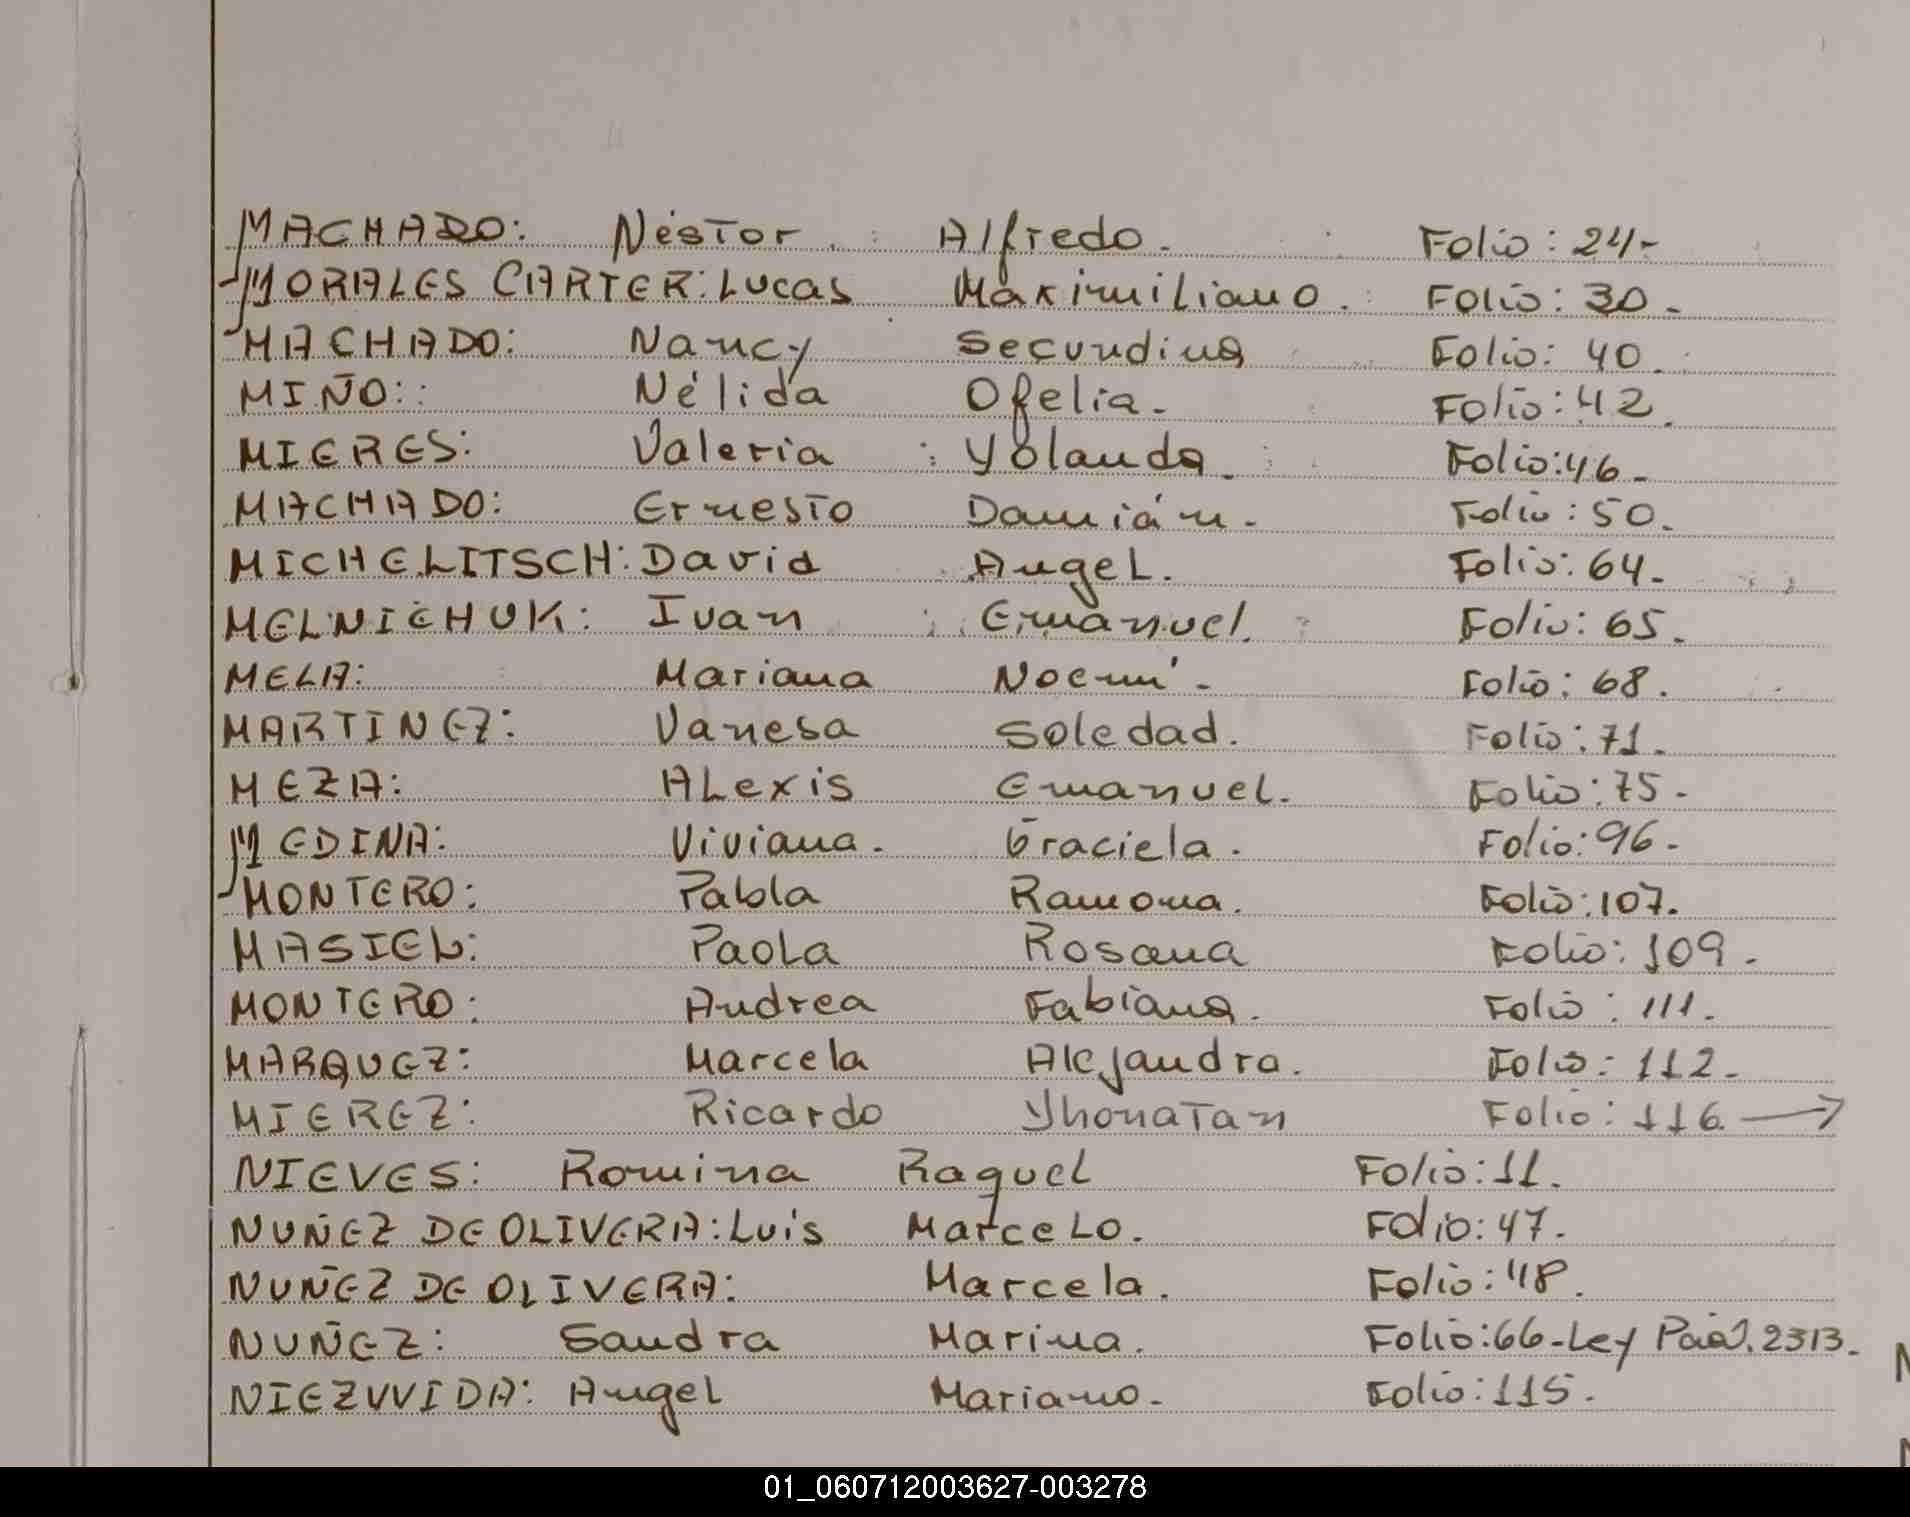 MACHADO: Néstor Alfredo. Folio: 24-
MORALES CARTER: Lucas Maximiliano. Folio: 30.
MACHADO: Nancy Secundina Folio: 40.
MIÑO: Nélida Ofelia. Folio: 42.
MIERES: Valeria Yolanda. Folio: 46.
MACHADO: Ernesto Damián. Folio: 50.
MICHELITSCH: David Angel. Folio: 64.
MELNICHUK: Ivan Emanuel. Folio: 65.
MELA: Mariana Noemí. Folio: 68.
MARTINEZ: Vanesa Soledad. Folio: 71.
MEZA: Alexis Emanuel. Folio: 75.
MEDINA: Viviana. Graciela. Folio: 96.
MONTERO: Pabla Ramona. Folio: 107.
MASIEL: Paola Rosana Folio: 109.
MONTERO: Andrea Fabiana. Folio: 111.
MARQUEZ: Marcela Alejandra. Folio: 112.
MIEREZ: Ricardo Yhonatan Folio: 116 →
NIEVES: Romina Raquel Folio: 11.
NUÑEZ DE OLIVERA: Luis Marcelo. Folio: 47.
NUÑEZ DE OLIVERA: Marcela. Folio: 48.
NUÑEZ: Sandra Marina. Folio: 66-Ley 2313.
NIEZWIDA: Angel Mariano. Folio: 115.
01_060712003627-003278